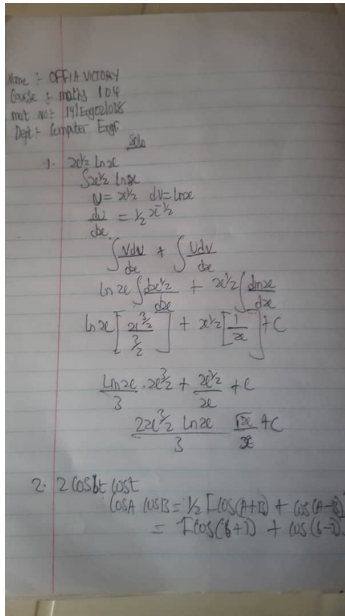 Name :- OFFIA VICTORY
Course :- maths 104
mat no:- 
Dept:- Computer Engr
Soln
1. x^1/2 lnx
∫x^1/2 lnx
U = x^1/2 dv = lnx
du/dx = 1/2 x^-1/2
∫Vdu/dx + ∫Udv/dx
lnx ∫dx^1/2/dx + x^1/2 ∫dlnx/dx
lnx [x^3/2 / 3/2] + x^1/2 [1/x] + C
lnx/3 · x^3/2 + x^1/2/x + C
2x^3/2 lnx/3 √x/x + C
2. 2 Cos6t Cost
CosA CosB = 1/2 [Cos(A+B) + Cos(A-B)
= [Cos(6+1) + Cos(6-1)